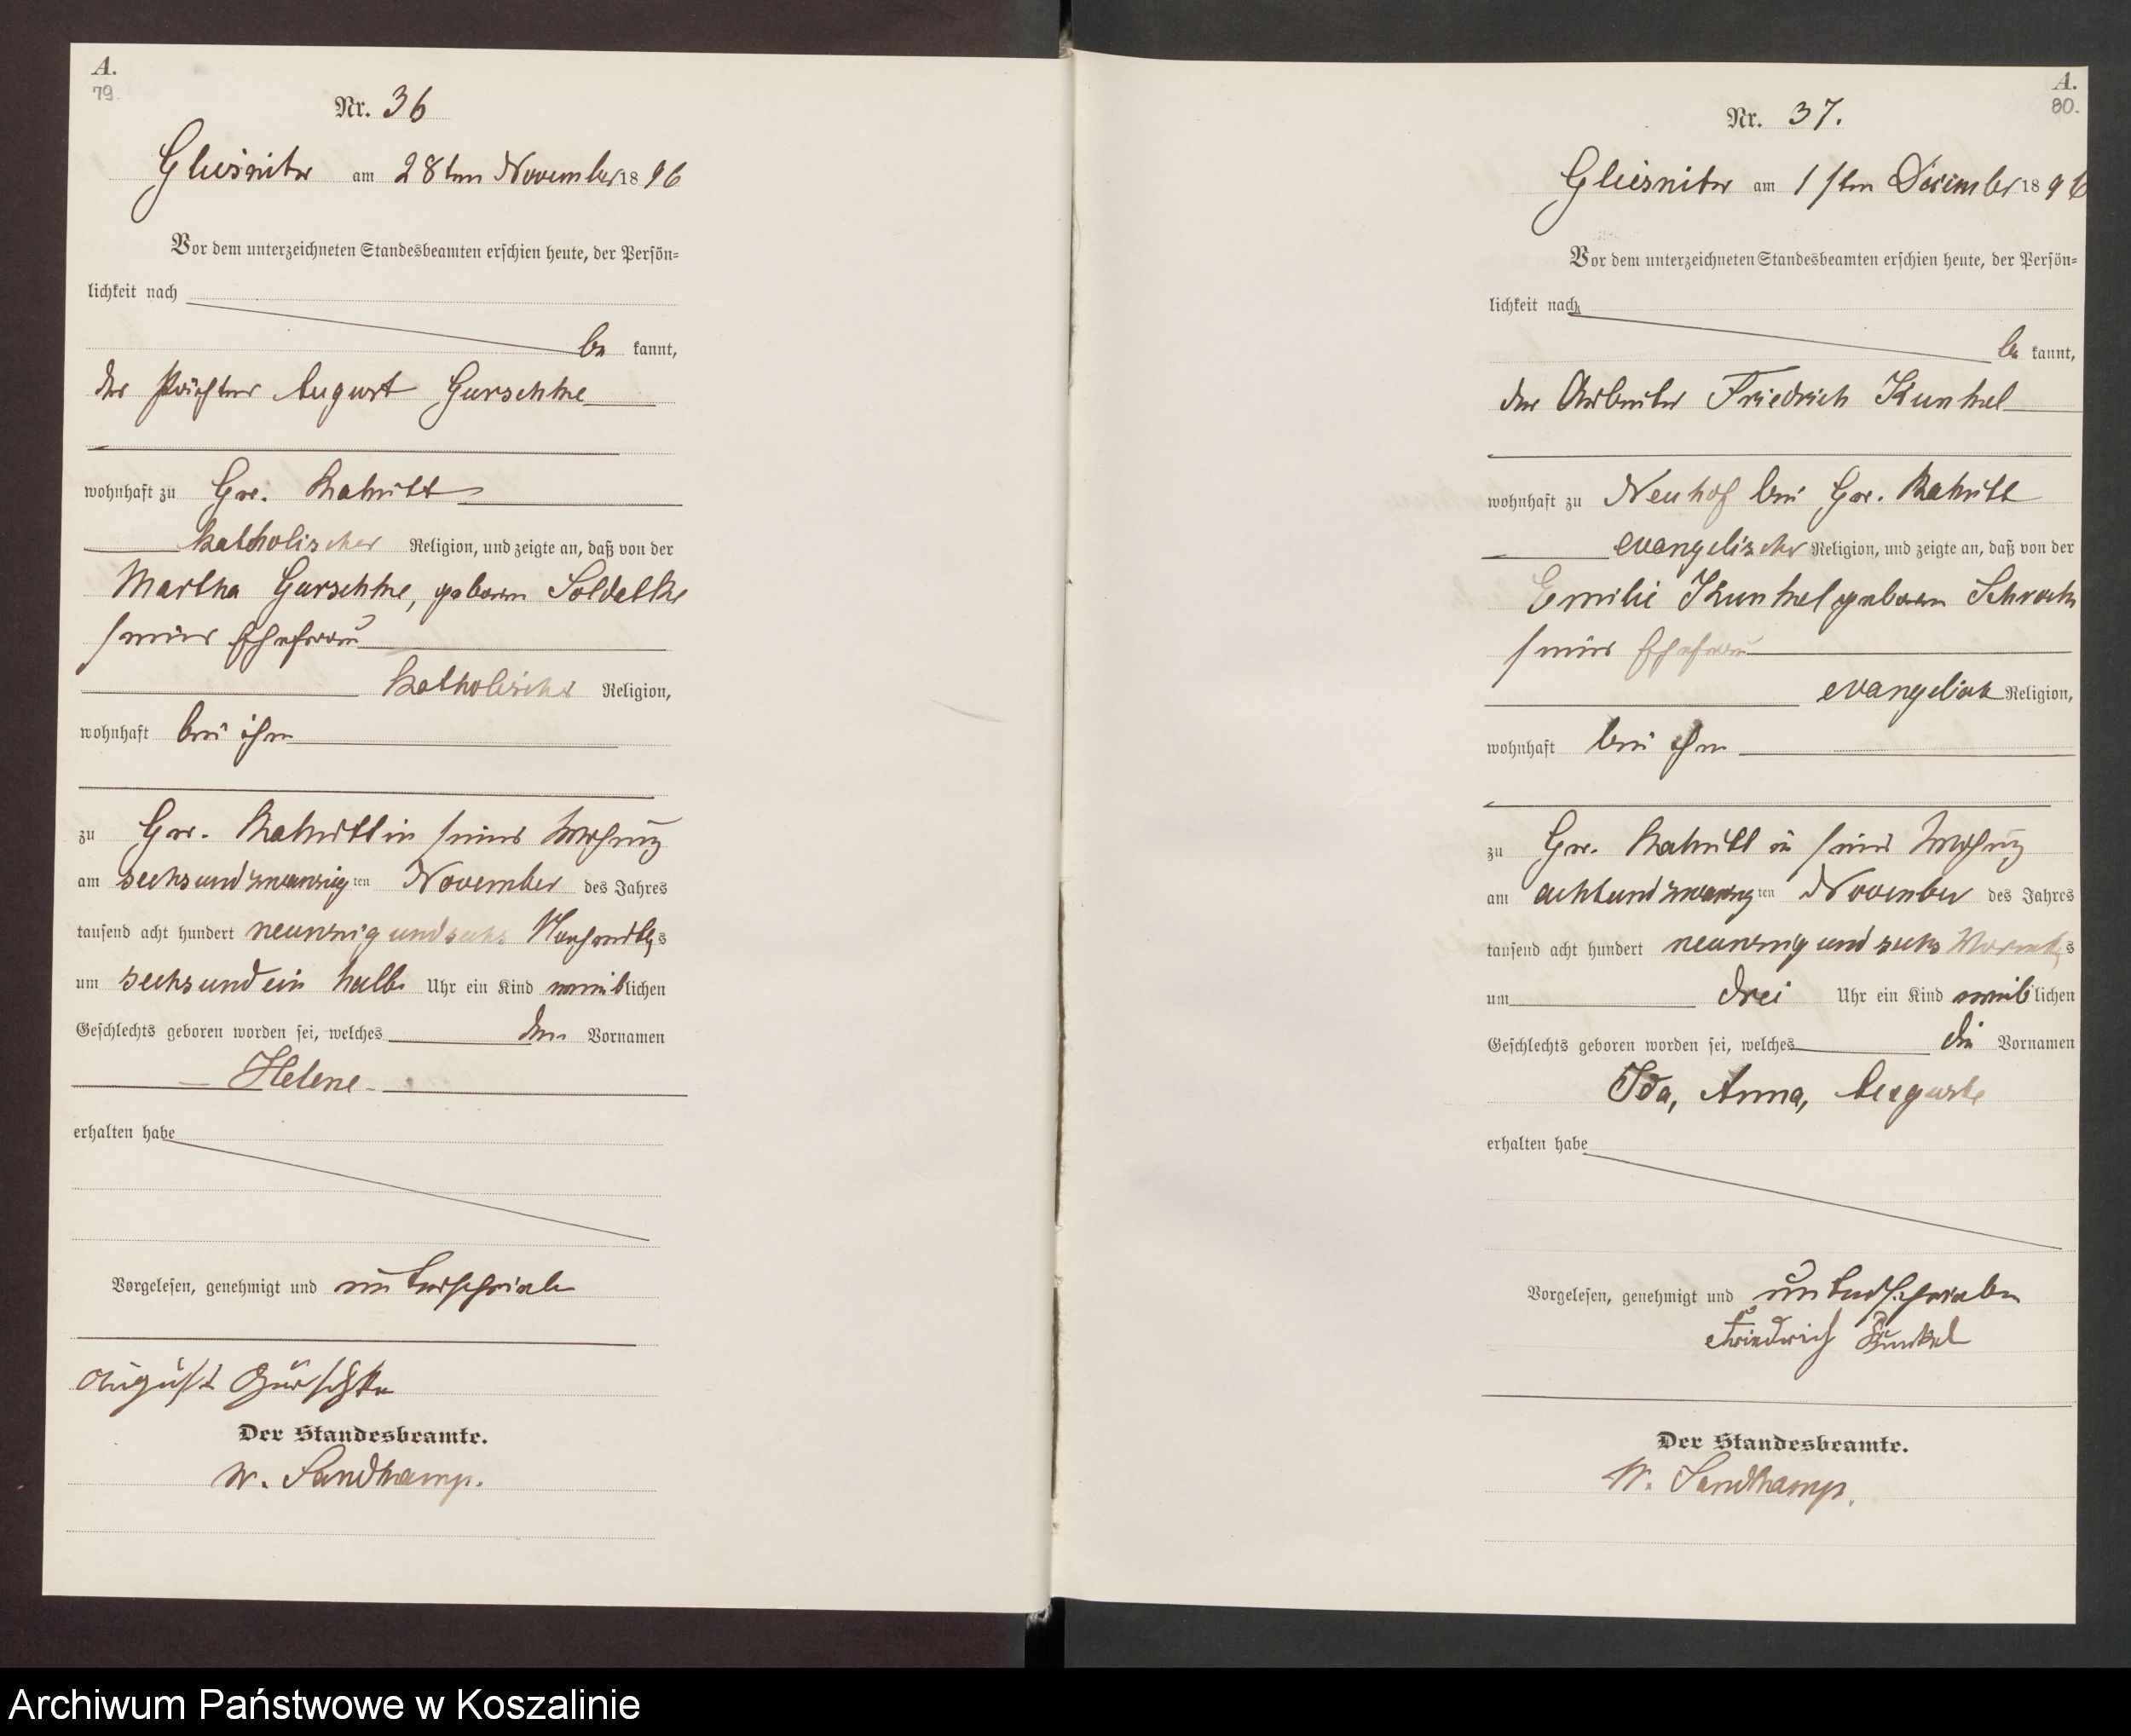 A.
79.
Nr. 36
Gliesnitz am 28ten November 1896
Vor dem unterzeichneten Standesbeamten erschien heute, der Persön=
lichkeit nach
be kannt,
der Pächter August Gurschke
wohnhaft zu Gr. Rakitt
katholischer Religion, und zeigte an, daß von der
Martha Gurschke, geboren Soldatke
seiner Ehefrau
katholischer Religion,
wohnhaft bei ihm
zu Gr. Rakitt in seiner Wohnung
am sechsundzwanzig ten November des Jahres
tausend acht hundert neunzig und sechs Nachmittags
um sechs und ein halb Uhr ein Kind weiblichen
Geschlechts geboren worden sei, welches den Vornamen
Helene
erhalten habe
Vorgelesen, genehmigt und unterschrieben
August Gurschke
Der Standesbeamte.
W. Sandkamp.
A.
80.
Nr. 37.
Gliesnitz am 1sten Dezember 1896
Vor dem unterzeichneten Standesbeamten erschien heute, der Persön=
lichkeit nach
be kannt,
der Arbeiter Friedrich Kunkel
wohnhaft zu Neuhof bei Gr. Rakitt
evangelischer Religion, und zeigte an, daß von der
Emilie Kunkel geboren
seiner Ehefrau
evangelisch Religion,
wohnhaft bei ihm
zu Gr. Rakitt in seiner Wohnung
am achtundzwanzig ten November des Jahres
tausend acht hundert neunzig und sechs Vormittags
um drei Uhr ein Kind weiblichen
Geschlechts geboren worden sei, welches die Vornamen
Ida, Anna, Auguste
erhalten habe
Vorgelesen, genehmigt und unterschrieben
Friedrich Kunkel
Der Standesbeamte.
W. Sandkamp.
Archiwum Państwowe w Koszalinie